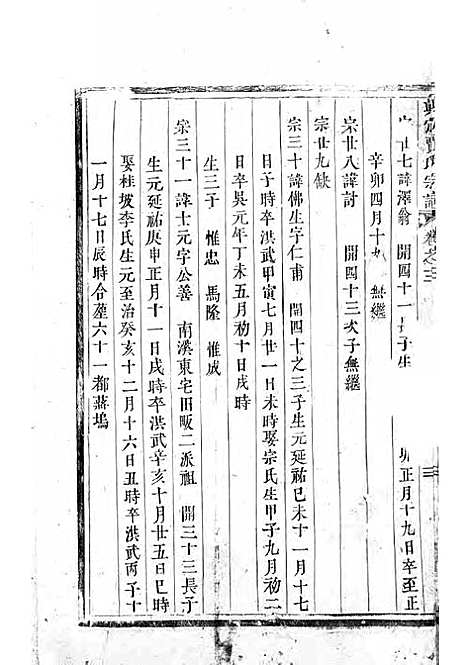 宗譜 卷之三
廿七諱澤翁 開四十一長子生 卯正月十九日卒至正
辛卯四月十九 無繼
宗廿八諱討 開四十三次子無繼
宗廿九缺
宗三十諱佛生字仁甫 開四十之三子生元延祐巳未十一月十七
日子時卒洪武甲寅七月廿一日未時娶宗氏生甲子九月初二
日卒吳元年丁未五月初十日戌時
生三子 惟忠 馬隆 惟成
宗三十一諱士元字公善 南溪東宅田畈二派祖 開三十三長子
生元延祐庚申正月十一日戌時卒洪武辛亥十月廿五日巳時
娶桂坡李氏生元至治癸亥十二月十六日丑時卒洪武丙子十
一月十七日辰時合葬六十一都蔣塢